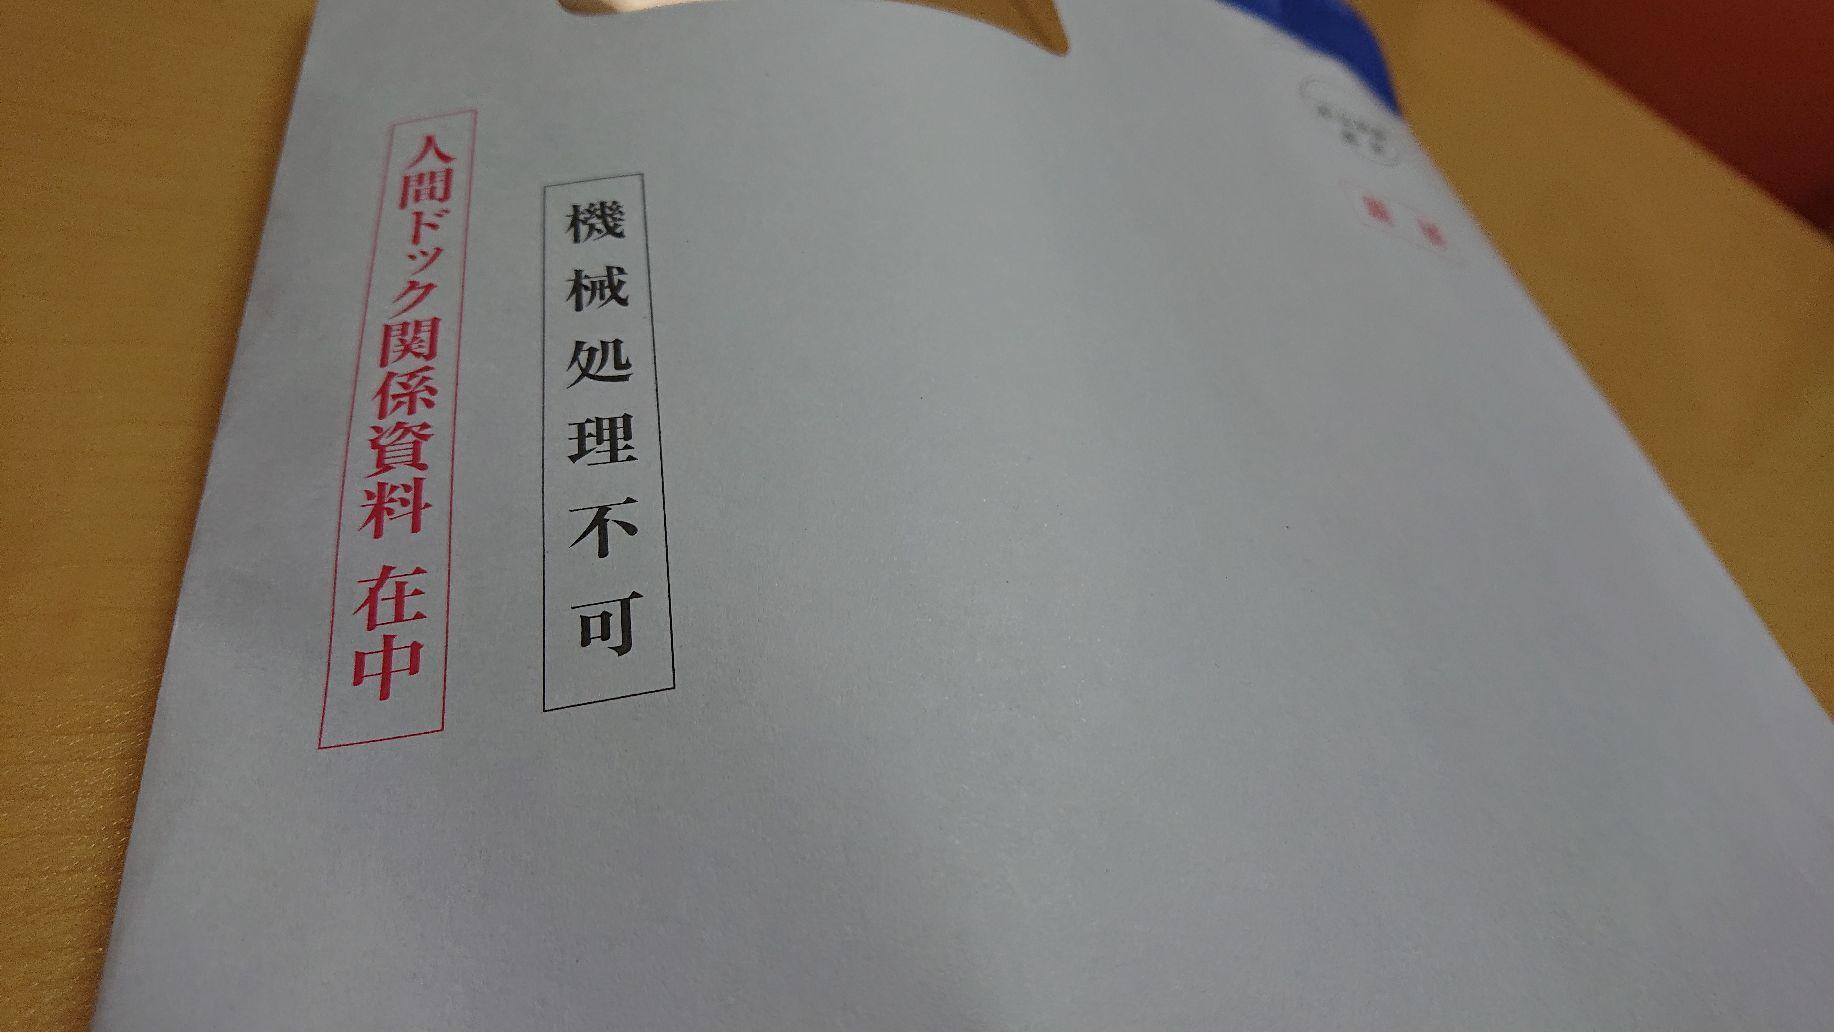 機械処理不可
人間ドック関係資料 在中